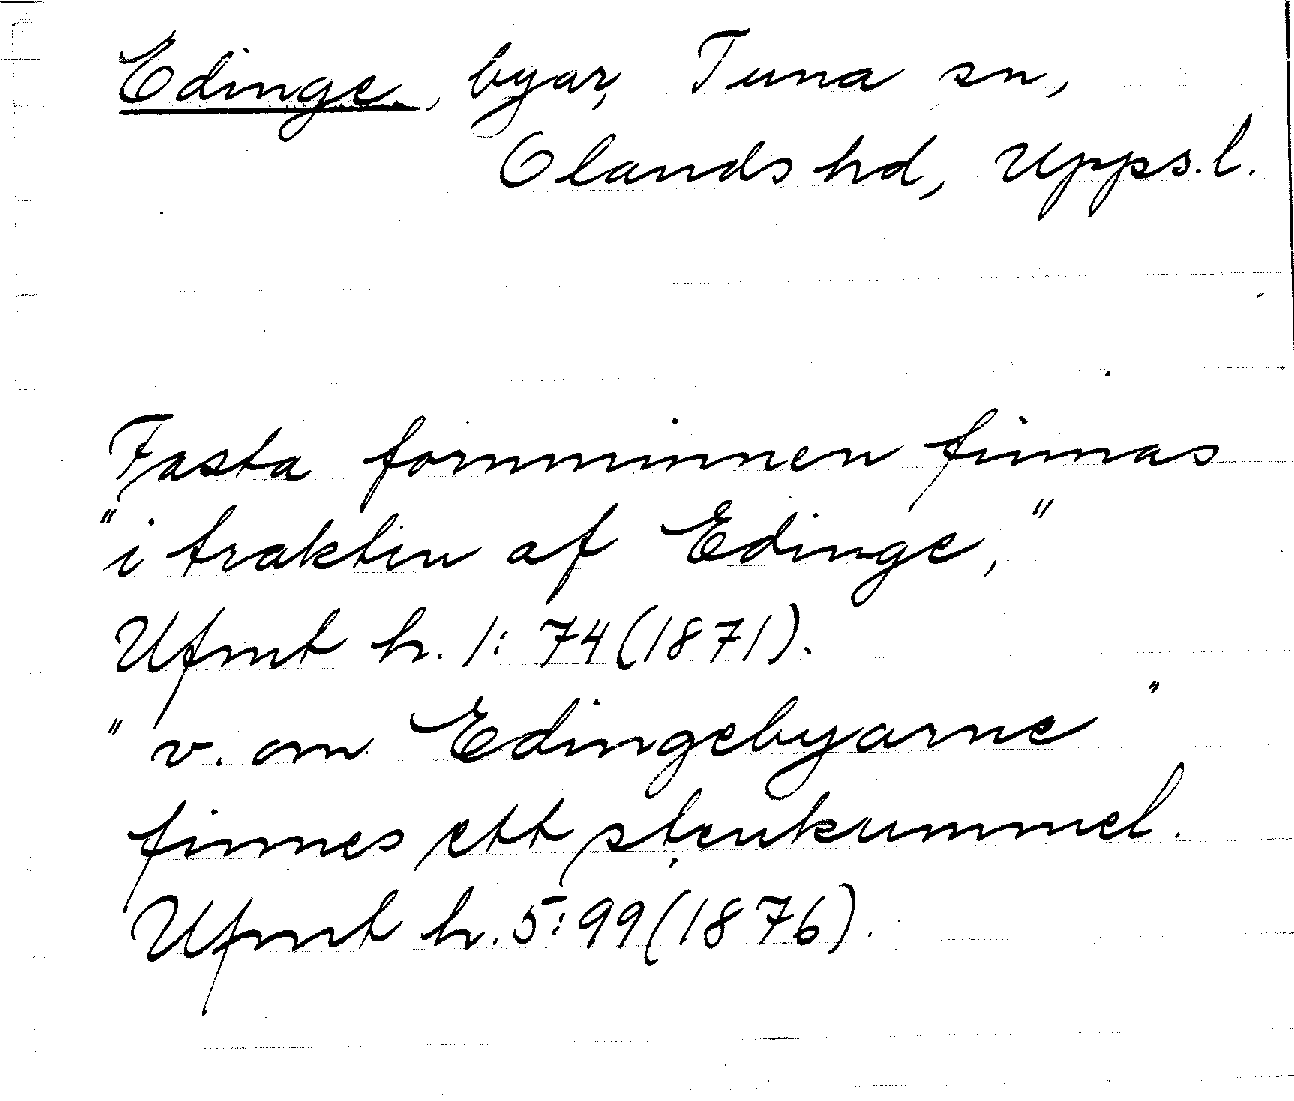 Edinge, byar, Tuna sn,
Olands hd, Upps. l.
Fasta fornminnen finnas
"i trakten af Edinge,"
Ufmt h. 1: 74 (1871).
"v. om Edingebyarne"
finnes ett stenkummel.
Ufmt h. 5: 99 (1876).